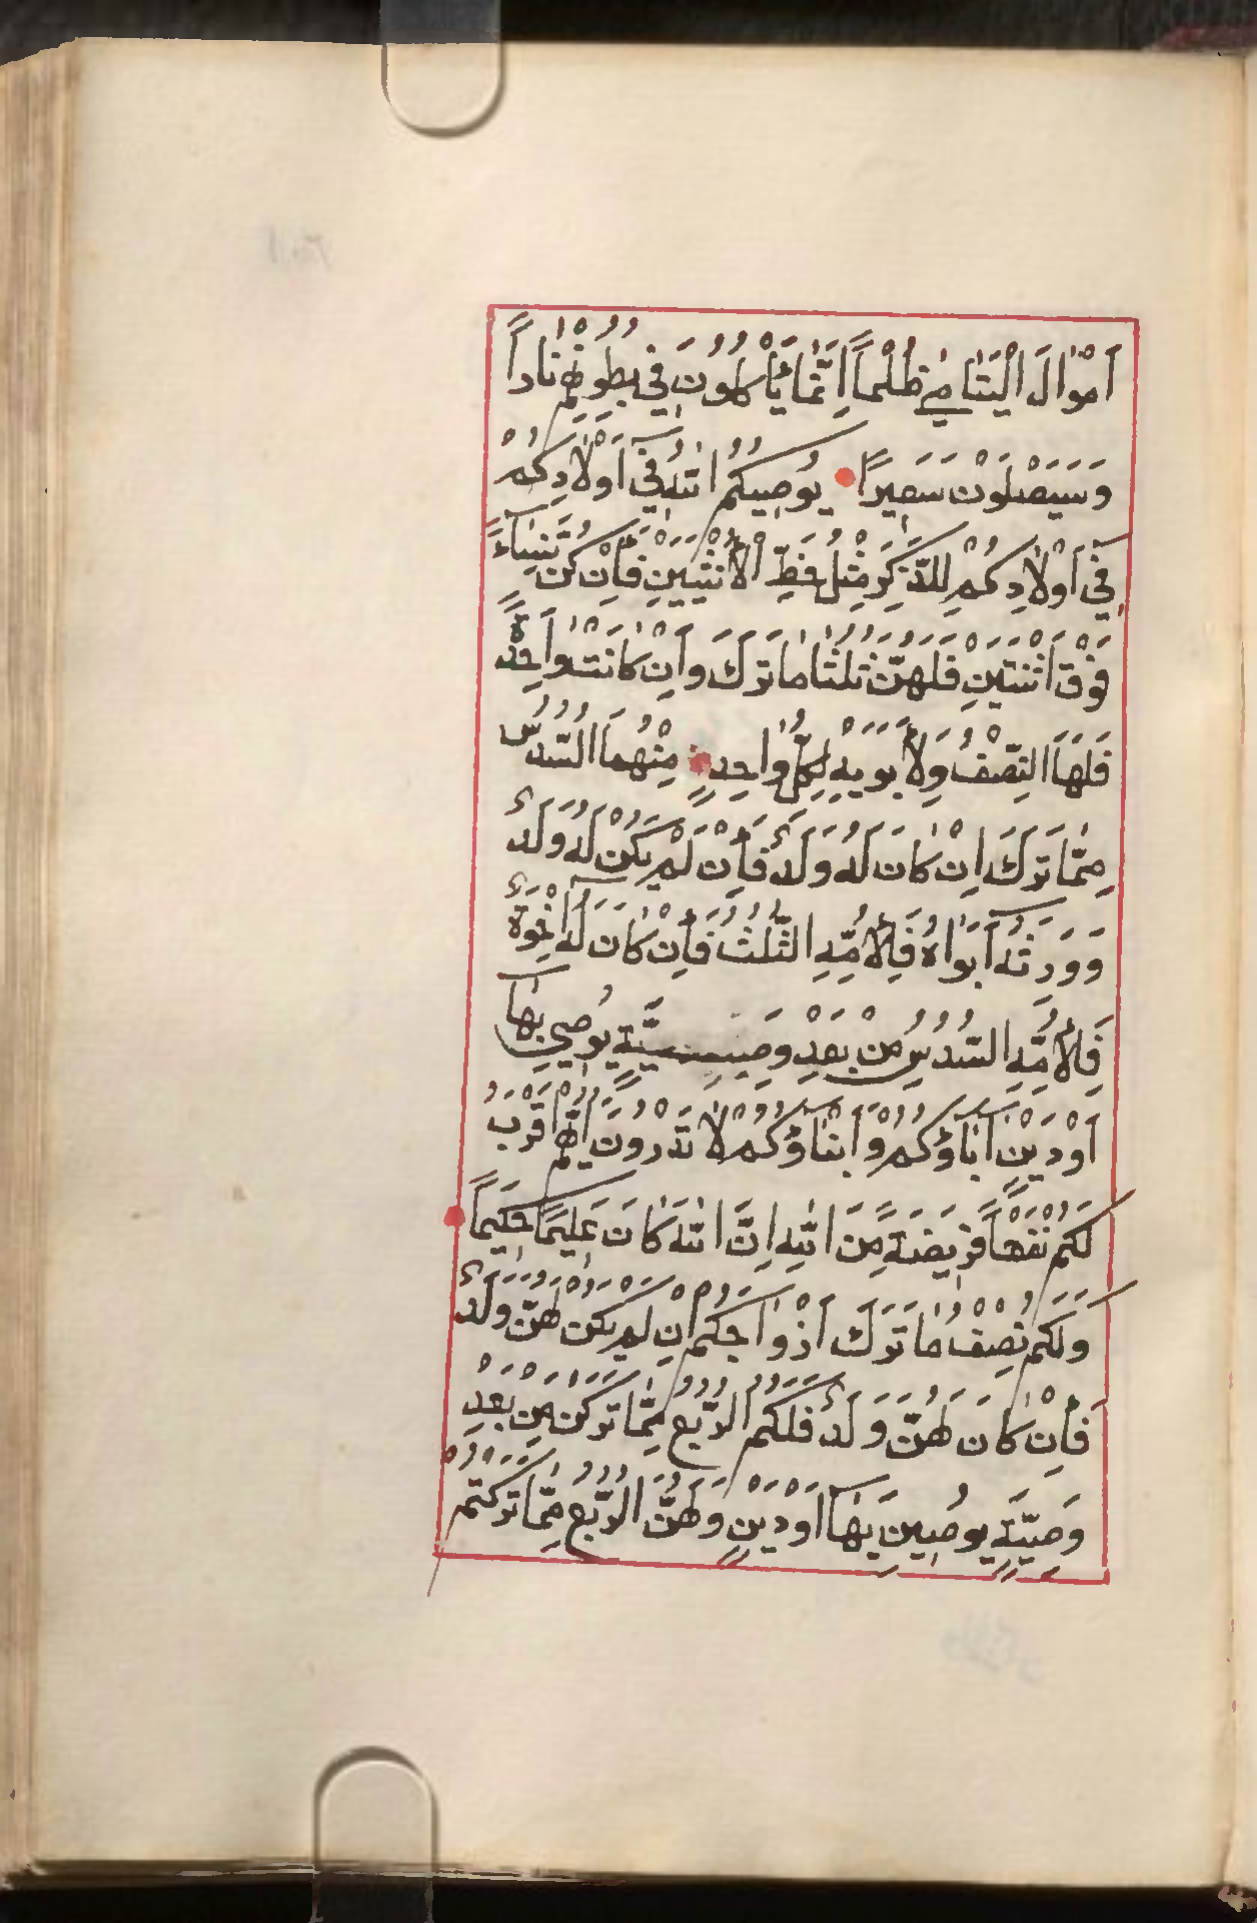 اَمْوٰالَ الْيَتٰامٰي ظُلْماً اِنَّمٰا يَأْكُلُونَ فِي بُطُونِهِمْ نٰاراً
وَسَيَصْلَوْنَ سَعِيراً يُوصِيكُمُ اللّٰهُ فِي اَوْلٰادِكُمْ
فِي اَوْلٰادِكُمْ لِلذَّكَرِ مِثْلُ حَظِّ الْأُنْثَيَيْنِ فَاِنْ كُنَّ نِسٰاءً
فَوْقَ اثْنَتَيْنِ فَلَهُنَّ ثُلُثٰا مٰا تَرَكَ وَاِنْ كٰانَتْ وٰاحِدَةً
فَلَهَا النِّصْفُ وَلِأَبَوَيْهِ لِكُلِّ وٰاحِدٍ مِنْهُمَا السُّدُسُ
مِمّٰا تَرَكَ اِنْ كٰانَ لَهُ وَلَدٌ فَاِنْ لَمْ يَكُنْ لَهُ وَلَدٌ
وَوَرِثَهُ اَبَوٰاهُ فَلِأُمِّهِ الثُّلُثُ فَاِنْ كٰانَ لَهُ اِخْوَةٌ
فَلِأُمِّهِ السُّدُسُ مِنْ بَعْدِ وَصِيَّةٍ يُوصِي بِهٰا
اَوْ دَيْنٍ اٰبٰاؤُكُمْ وَاَبْنٰاؤُكُمْ لٰا تَدْرُونَ اَيُّهُمْ اَقْرَبُ
لَكُمْ نَفْعاً فَرِيضَةً مِّنَ اللّٰهِ اِنَّ اللّٰهَ كٰانَ عَلِيماً حَكِيماً
وَلَكُمْ نِصْفُ مٰا تَرَكَ اَزْوٰاجُكُمْ اِنْ لَمْ يَكُنْ لَهُنَّ وَلَدٌ
فَاِنْ كٰانَ لَهُنَّ وَلَدٌ فَلَكُمُ الرُّبُعُ مِمّٰا تَرَكْنَ مِنْ بَعْدِ
وَصِيَّةٍ يُوصِينَ بِهٰا اَوْ دَيْنٍ وَلَهُنَّ الرُّبُعُ مِمّٰا تَرَكْتُمْ